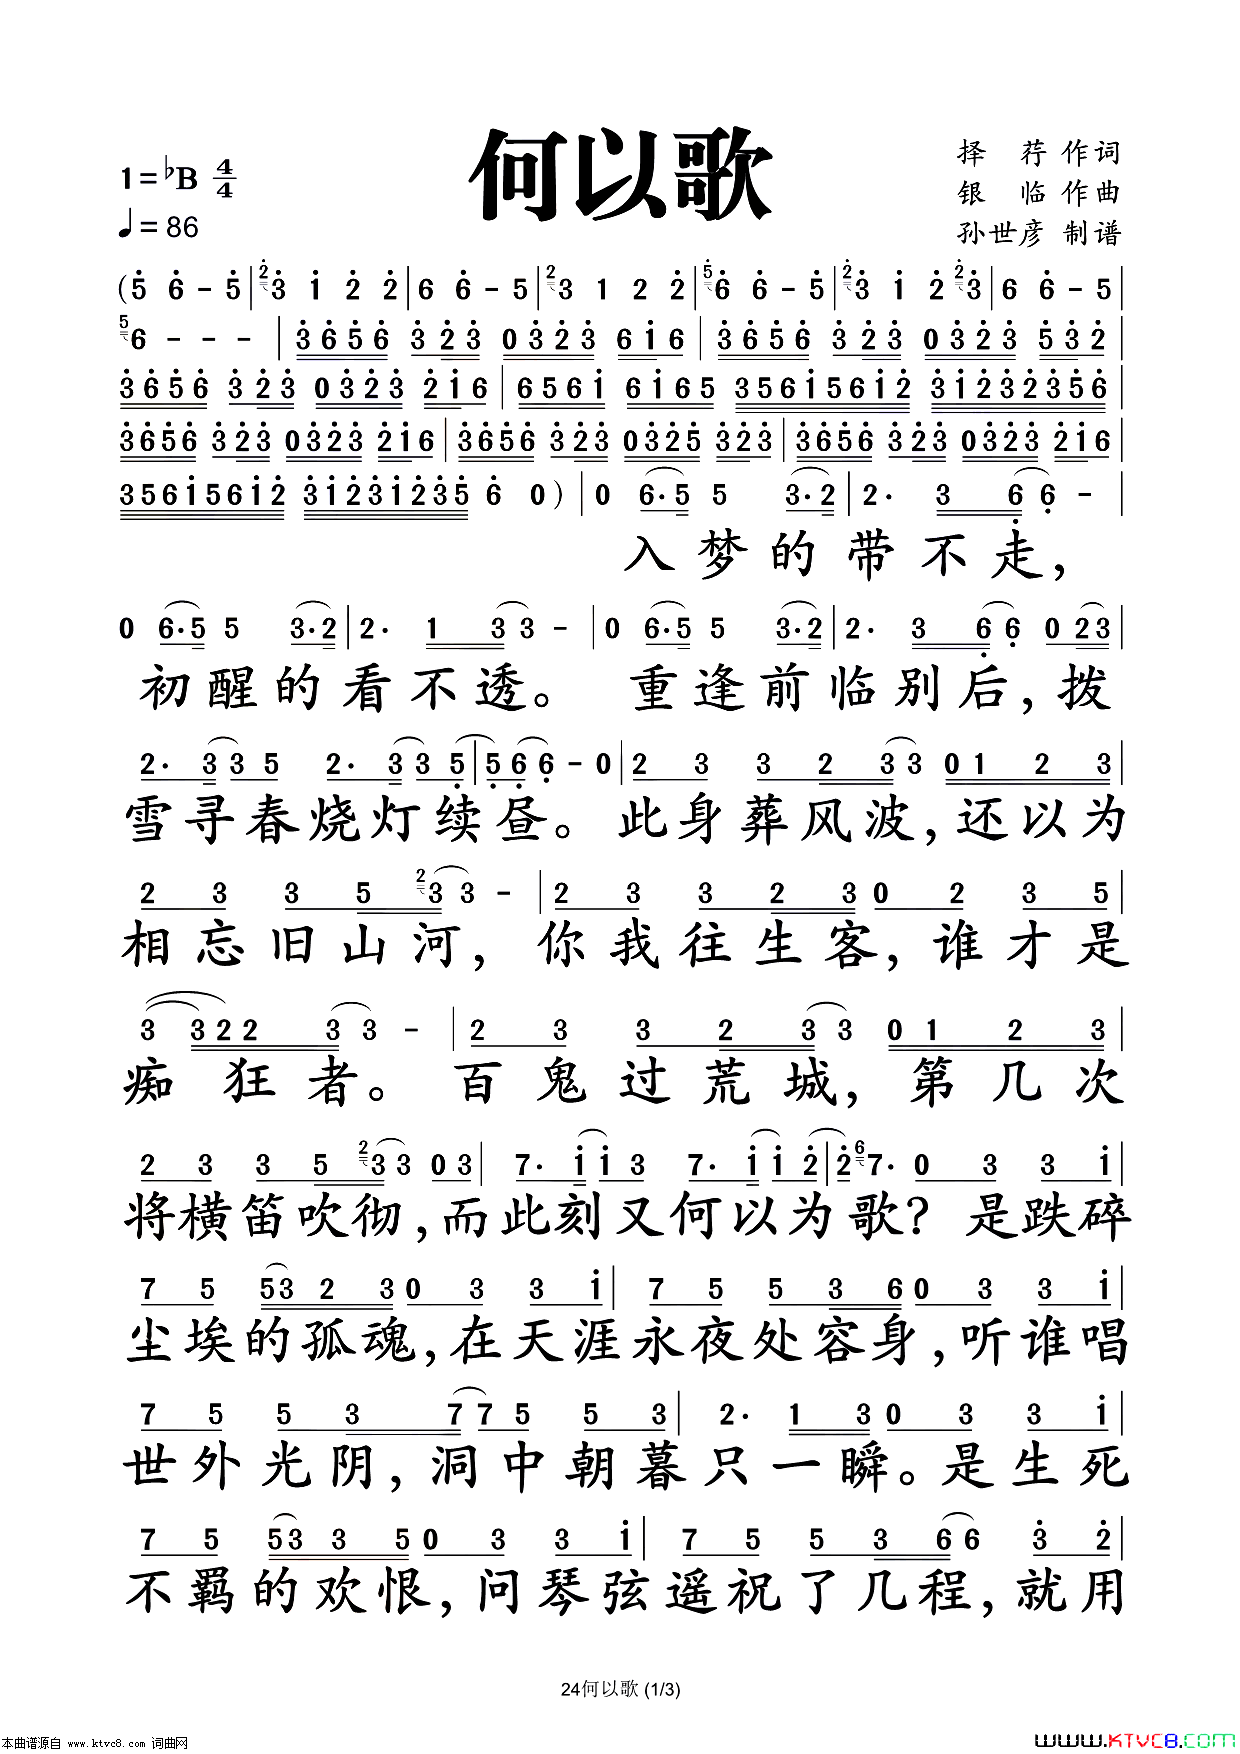 何以歌
1=♭B 4/4
♩=86
择 荐 作词
银 临 作曲
孙世彦 制谱
(5 6 - 5|2 3 1 2 2|6 6 - 5|2 3 1 2 2|5 6 6 - 5|2 3 1 2 2 3|6 6 - 5|
5 6 - - - |3656 323 0323 616|3656 323 0323 532|
3656 323 0323 216|6561 6165 35615612 31232356|
3656 323 0323 216|3656 323 0325 323|3656 323 0323 216|
35615612 31231235 6 0)|0 6·5 5 3·2|2· 3 6 6 -|
入梦的带不走,
0 6·5 5 3·2|2· 1 3 3 -|0 6·5 5 3·2|2· 3 6 6 0 2 3|
初醒的看不透。重逢前临别后,拨
2· 3 3 5 2· 3 3 5|5 6 6 - 0|2 3 3 2 3 3 0 1 2 3|
雪寻春烧灯续昼。此身葬风波,还以为
2 3 3 5 2 3 3 -|2 3 3 2 3 0 2 3 5|
相忘旧山河,你我往生客,谁才是
3 3 2 2 3 3 -|2 3 3 2 3 3 0 1 2 3|
痴狂者。百鬼过荒城,第几次
2 3 3 5 2 3 3 0 3|7· 1 1 3 7· 1 1 2|2 6 7· 0 3 3 1|
将横笛吹彻,而此刻又何以为歌?是跌碎
7 5 5 3 2 3 0 3 3 1|7 5 5 3 6 0 3 3 1|
尘埃的孤魂,在天涯永夜处容身,听谁唱
7 5 5 3 7 7 5 5 3|2· 1 3 0 3 3 1|
世外光阴,洞中朝暮只一瞬。是生死
7 5 5 3 3 5 0 3 3 1|7 5 5 3 6 6 3 2|
不羁的欢恨,问琴弦遥祝了几程,就用
24何以歌 (1/3)
本曲谱源自 www.ktvc8.com 词曲网
www.KTVC8.COM